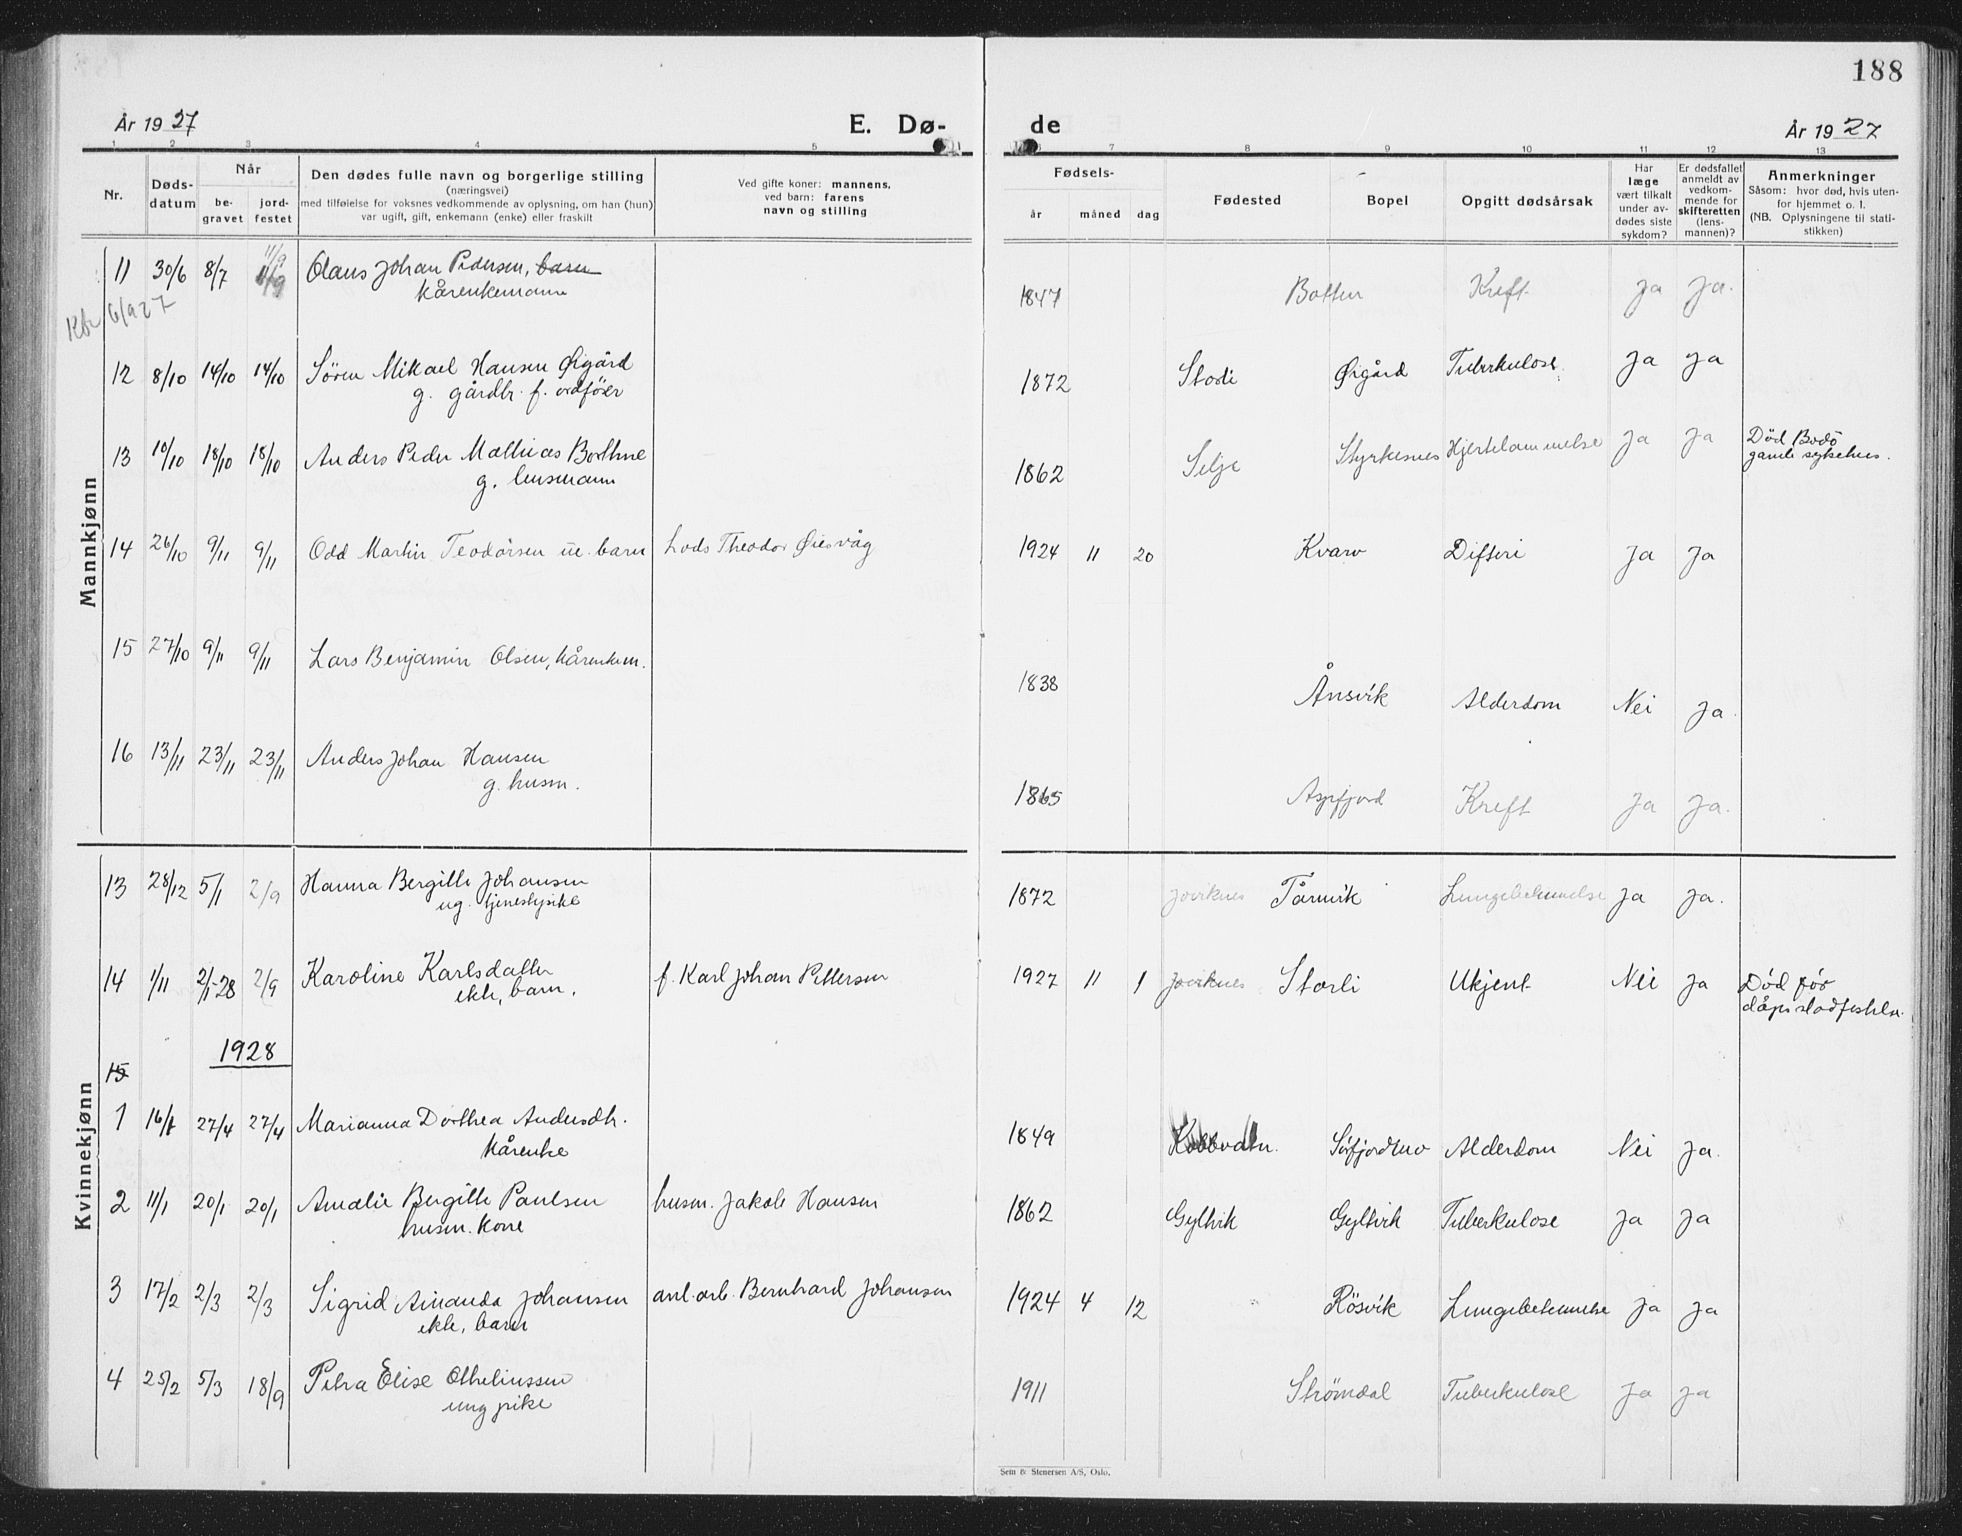 188
År 1927 E. Dø- de År 1927
1 2 3 4 5 6 7 8 9 10 11 12 13
Nr.
Døds-
datum
Når
be-
gravet
jord-
festet
Den dødes fulle navn og borgerlige stilling
(næringsvei)
med tilføielse for voksnes vedkommende av oplysning, om han (hun)
var ugift, gift, enkemann (enke) eller fraskilt
Ved gifte koner: mannens,
ved barn: farens
navn og stilling
Fødsels-
år måned dag
Fødested
Bopel
Opgitt dødsårsak
Har
læge
vært tilkalt
under av-
dødes siste
sykdom?
Er dødsfallet
anmeldt av
vedkom-
mende for
skifteretten
(lens-
mannen)?
Anmerkninger
Såsom: hvor død, hvis uten-
for hjemmet o. l.
(NB. Oplysningene til stati-
stikken)
Mannkjønn
11 30/6 8/7 11/9 Olaus Johan Pedersen, barn 1847 Botten Kreft Ja Ja.
kårenkemann
12 8/10 14/10 14/10 Sören Mikael Hansen Øigård 1872 Stordi Øigård Tuberkulose. Ja Ja
g. gårdbr. f. ordförer
13 10/10 18/10 18/10 Anders Peder Mathias Borthne 1862 Selje Styrkesnes Hjertelammelse Ja Ja Död Bodö
g. lensmann gamle sykehus.
14 26/10 9/11 9/11 Odd Martin Teodorsen ue. barn Lods Theodor Øiesvåg 1924 11 20 Kvarv Difteri Ja Ja
15 27/10 9/11 9/11 Lars Benjamin Olsen, kårenkem. 1838 Ånsvik Alderdom Nei Ja.
16 13/11 23/11 23/11 Anders Johan Hansen 1865 Aspfjord Kreft Ja Ja.
g. husm.
Kvinnekjønn
13 28/12 5/1 2/9 Hanna Bergitte Johansen 1872 Tårnvik Lungebetennelse Ja Ja.
ug. tjenestepike
14 1/11 2/1-28 2/9 Karoline Karlsdatter f. Karl Johan Pettersen 1927 11 1 Storli Ukjent Nei Ja Död för
ekte, barn. dåpsstadfestelse.
1928
15
1 16/1 27/4 27/4 Marianna Dorthea Andersdtr. 1849 Sörfjordmo Alderdom Nei Ja.
kårenke
2 11/1 20/1 20/1 Amalie Bergitte Paulsen husm. Jakob Hansen 1862 Gyltvik Gyltvik Tuberkulose Ja Ja
husm. kone
3 17/2 2/3 2/3 Sigrid Amanda Johansen anl. arb. Bernhard Johansen 1924 4 12 Rösvik Lungebetennelse Ja Ja
ekte, barn
4 25/2 5/3 18/9 Petra Elise Othelinssen 1911 Strömdal Tuberkulose Ja Ja
ung pike
Sem & Stenersen A/S, Oslo.